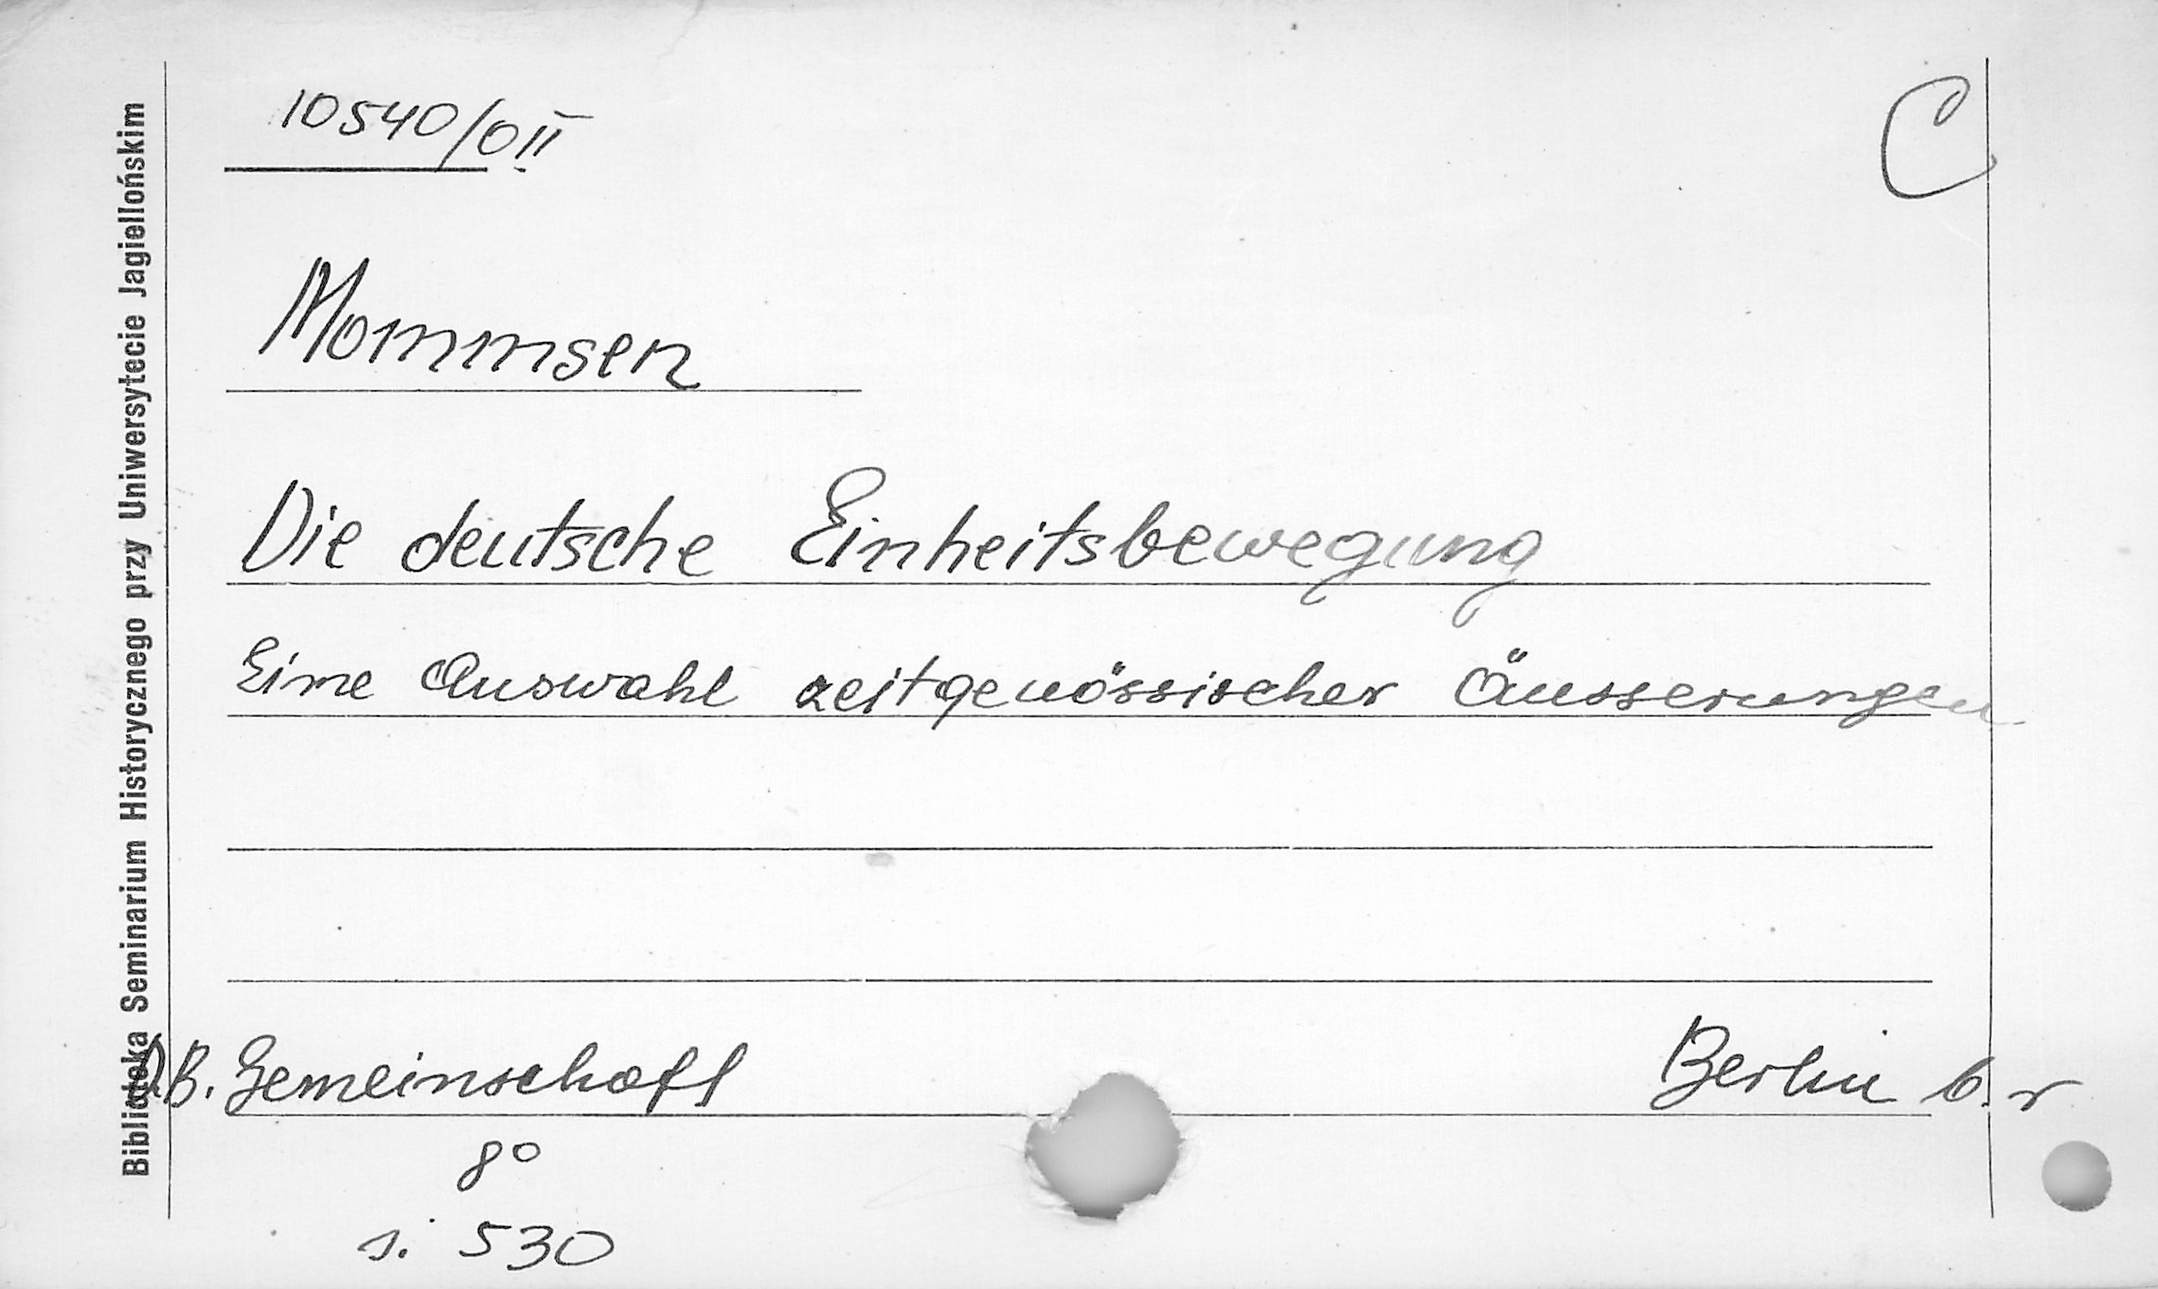 10540/0II
C
Mommsen
Die deutsche Einheitsbewegung
Eine Auswahl zeitgenössischer Äusserungen
D.B. Gemeinschaft
Berlin b. r
8°
s. 530
Biblioteka Seminarium Historycznego przy Uniwersytecie Jagiellońskim